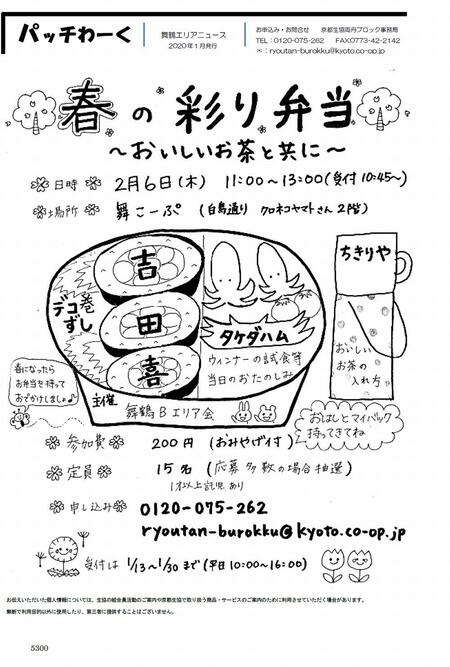 パッチわーく
舞鶴エリアニュース
2020年1月発行
お申込み・お問合せ 京都生協両丹ブロック事務局
TEL:0120-075-262 FAX0773-42-2142
✉:ryoutan-burokku@kyoto.co-op.jp
春の彩り弁当
～おいしいお茶と共に～
日時 2月6日(木) 11:00～13:00(受付10:45～)
場所 舞こーぷ (白鳥通り クロネコヤマトさん2階)
吉
田
喜
デコ巻
ずし
タケダハム
ウィンナーの試食等
当日のおたのしみ
ちきりや
おいしい
お茶の
入れ方
春になったら
お弁当を持って
おでかけしましょ♪
主催
舞鶴Bエリア会
おはしとマイバック
持ってきてね
参加費 200円 (おみやげ付)
定員 15名 (応募多数の場合抽選)
1才以上託児あり
申し込み 0120-075-262
ryoutan-burokku@kyoto.co-op.jp
受付は 1/13～1/30まで(平日10:00～16:00)
お伝えいただいた個人情報については、生協の組合員活動のご案内や京都生協で取り扱う商品・サービスのご案内のために利用させていただく場合があります。
無断で利用目的以外に使用したり、第三者に提供することはございません。
5300